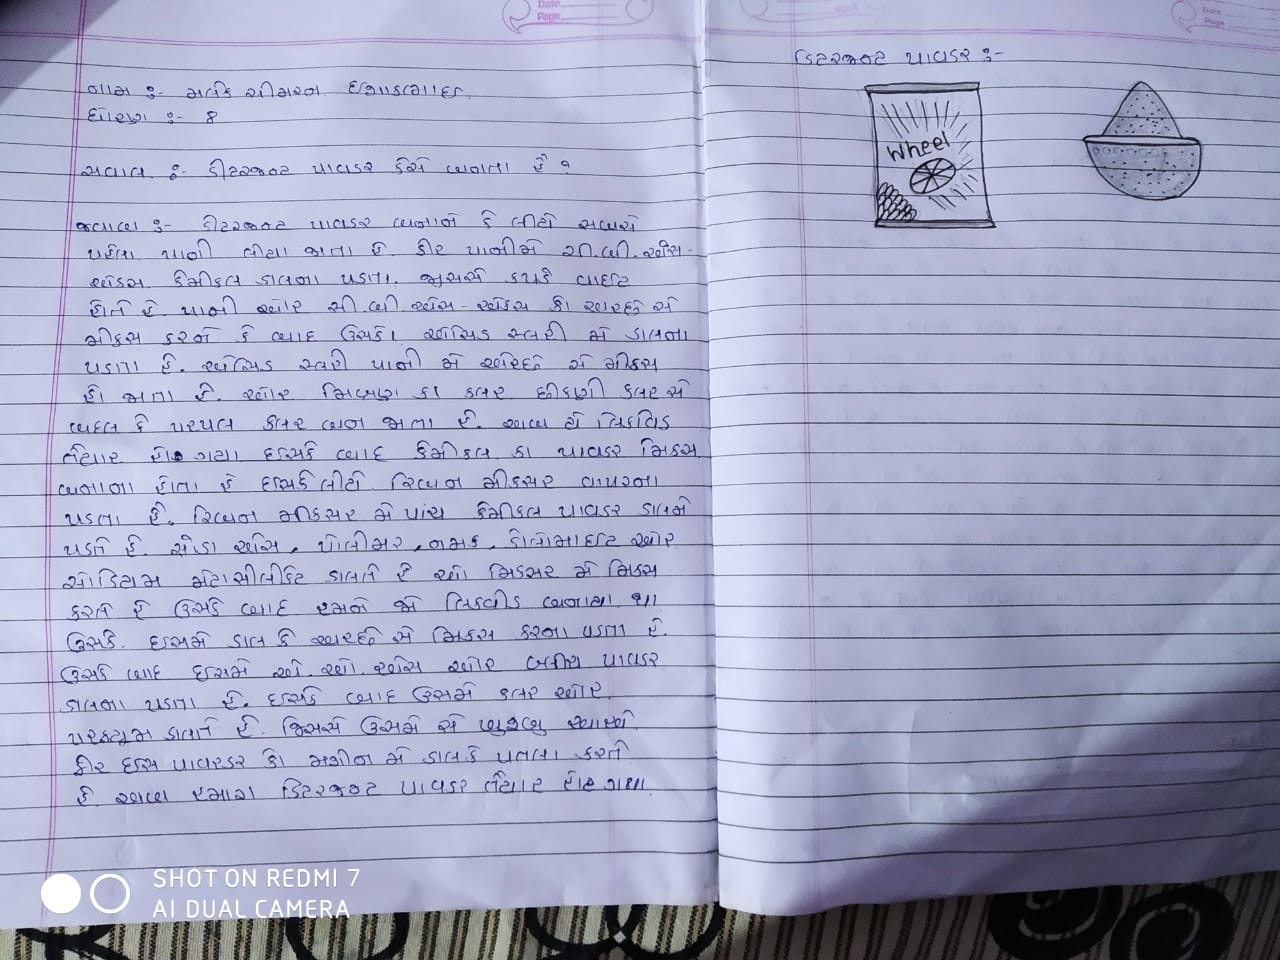 Date
Page
Date
Page
નામ :- મલેક સીમરન
ધોરણ :- 8
સવાલ :- ડીટરજન્ટ પાવડર કેસે બનતા હૈ ?
જવાબ :- ડીટરજન્ટ પાવડર બનાને કે લીયે સબસે
પહેલા પાની લીયા જાતા હૈ. ફીર પાનીમે સી.બી.એસ-
એક્સ કેમીકલ ડાલના પડતા. જીસસે કપડે વાઈટ
હોતે હૈ. પાની ઓર સી.બી.એસ-એક્સ કો અચ્છે સે
મીક્સ કરને કે બાદ ઉસકો એસિડ સ્લરી મે ડાલના
પડતા હૈ. એસિડ સ્લરી પાની મે અચ્છે સે મીક્સ
હો જાતા હૈ. ઓર મિશ્રણ કા કલર છીકણી કલર સે
બદલ કે પરપલ કલર બન જાતા હૈ. અબ યે લિકવિડ
તૈયાર હો ગયા ઇસકે બાદ કેમીકલ કા પાવડર મિક્સ
બનાના હોતા હૈ ઇસકે લીયે રિબન મીકસર વાપરના
પડતા હૈ. રિબન મીકસર મે પાંચ કેમીકલ પાવડર ડાલને
પડતે હૈ. સોડા એસ, પોલીમર, નમક, ડોલોમાઈટ ઓર
સોડિયમ મેટાસીલીકેટ ડાલતે હૈ ઓ મિકસર મે મિક્સ
કરતે હૈ ઉસકે બાદ હમને જો લિકવીડ બનાયા થા
ઉસકે ઇસમે ડાલ કે અચ્છે સે મિક્સ કરના પડતા હૈ.
ઉસકે બાદ ઇસમે એ.ઓ.એસ ઓર પાવડર
ડાલના પડતા હૈ. ઇસકે બાદ ઉસમે કલર ઓર
પરફ્યુમ ડાલતે હૈ. જિસસે ઉસમે સે ખુશ્બુ આયે.
ફીર ઇસ પાવડર કો મશીન મે ડાલકે પતલા કરતે
હૈ. અબ હમારા ડિટરજન્ટ પાવડર તૈયાર હો ગયા.
Date
Page
ડિટરજન્ટ પાવડર :-
Wheel
SHOT ON REDMI 7
AI DUAL CAMERA